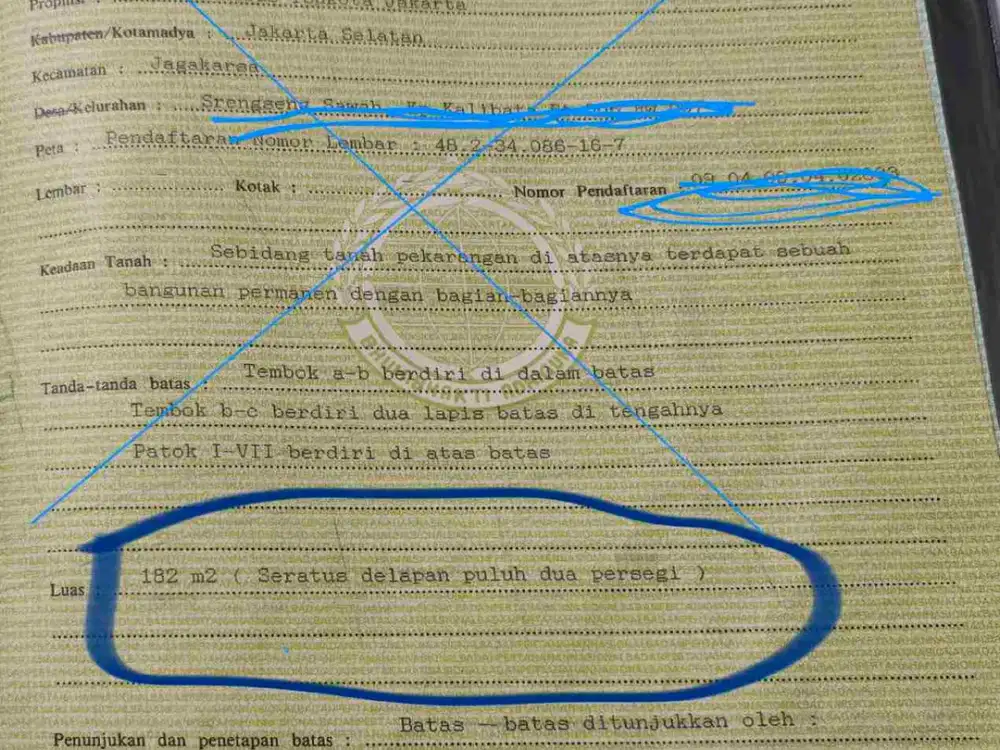 Jakarta
Kabupaten/Kotamadya : Jakarta Selatan
Kecamatan : Jagakarsa
Desa/Kelurahan : Srengseng Sawah,
Peta : Pendaftaran Nomor Lembar : 48.2-34.086-16-7
Lembar : Kotak : Nomor Pendaftaran
Keadaan Tanah : Sebidang tanah pekarangan di atasnya terdapat sebuah
bangunan permanen dengan bagian-bagiannya
Tanda-tanda batas : Tembok a-b berdiri di dalam batas
Tembok b-c berdiri dua lapis batas di tengahnya
Patok I-VII berdiri di atas batas
Luas : 182 m2 ( Seratus delapan puluh dua persegi )
Batas - batas ditunjukkan oleh :
Penunjukan dan penetapan batas :